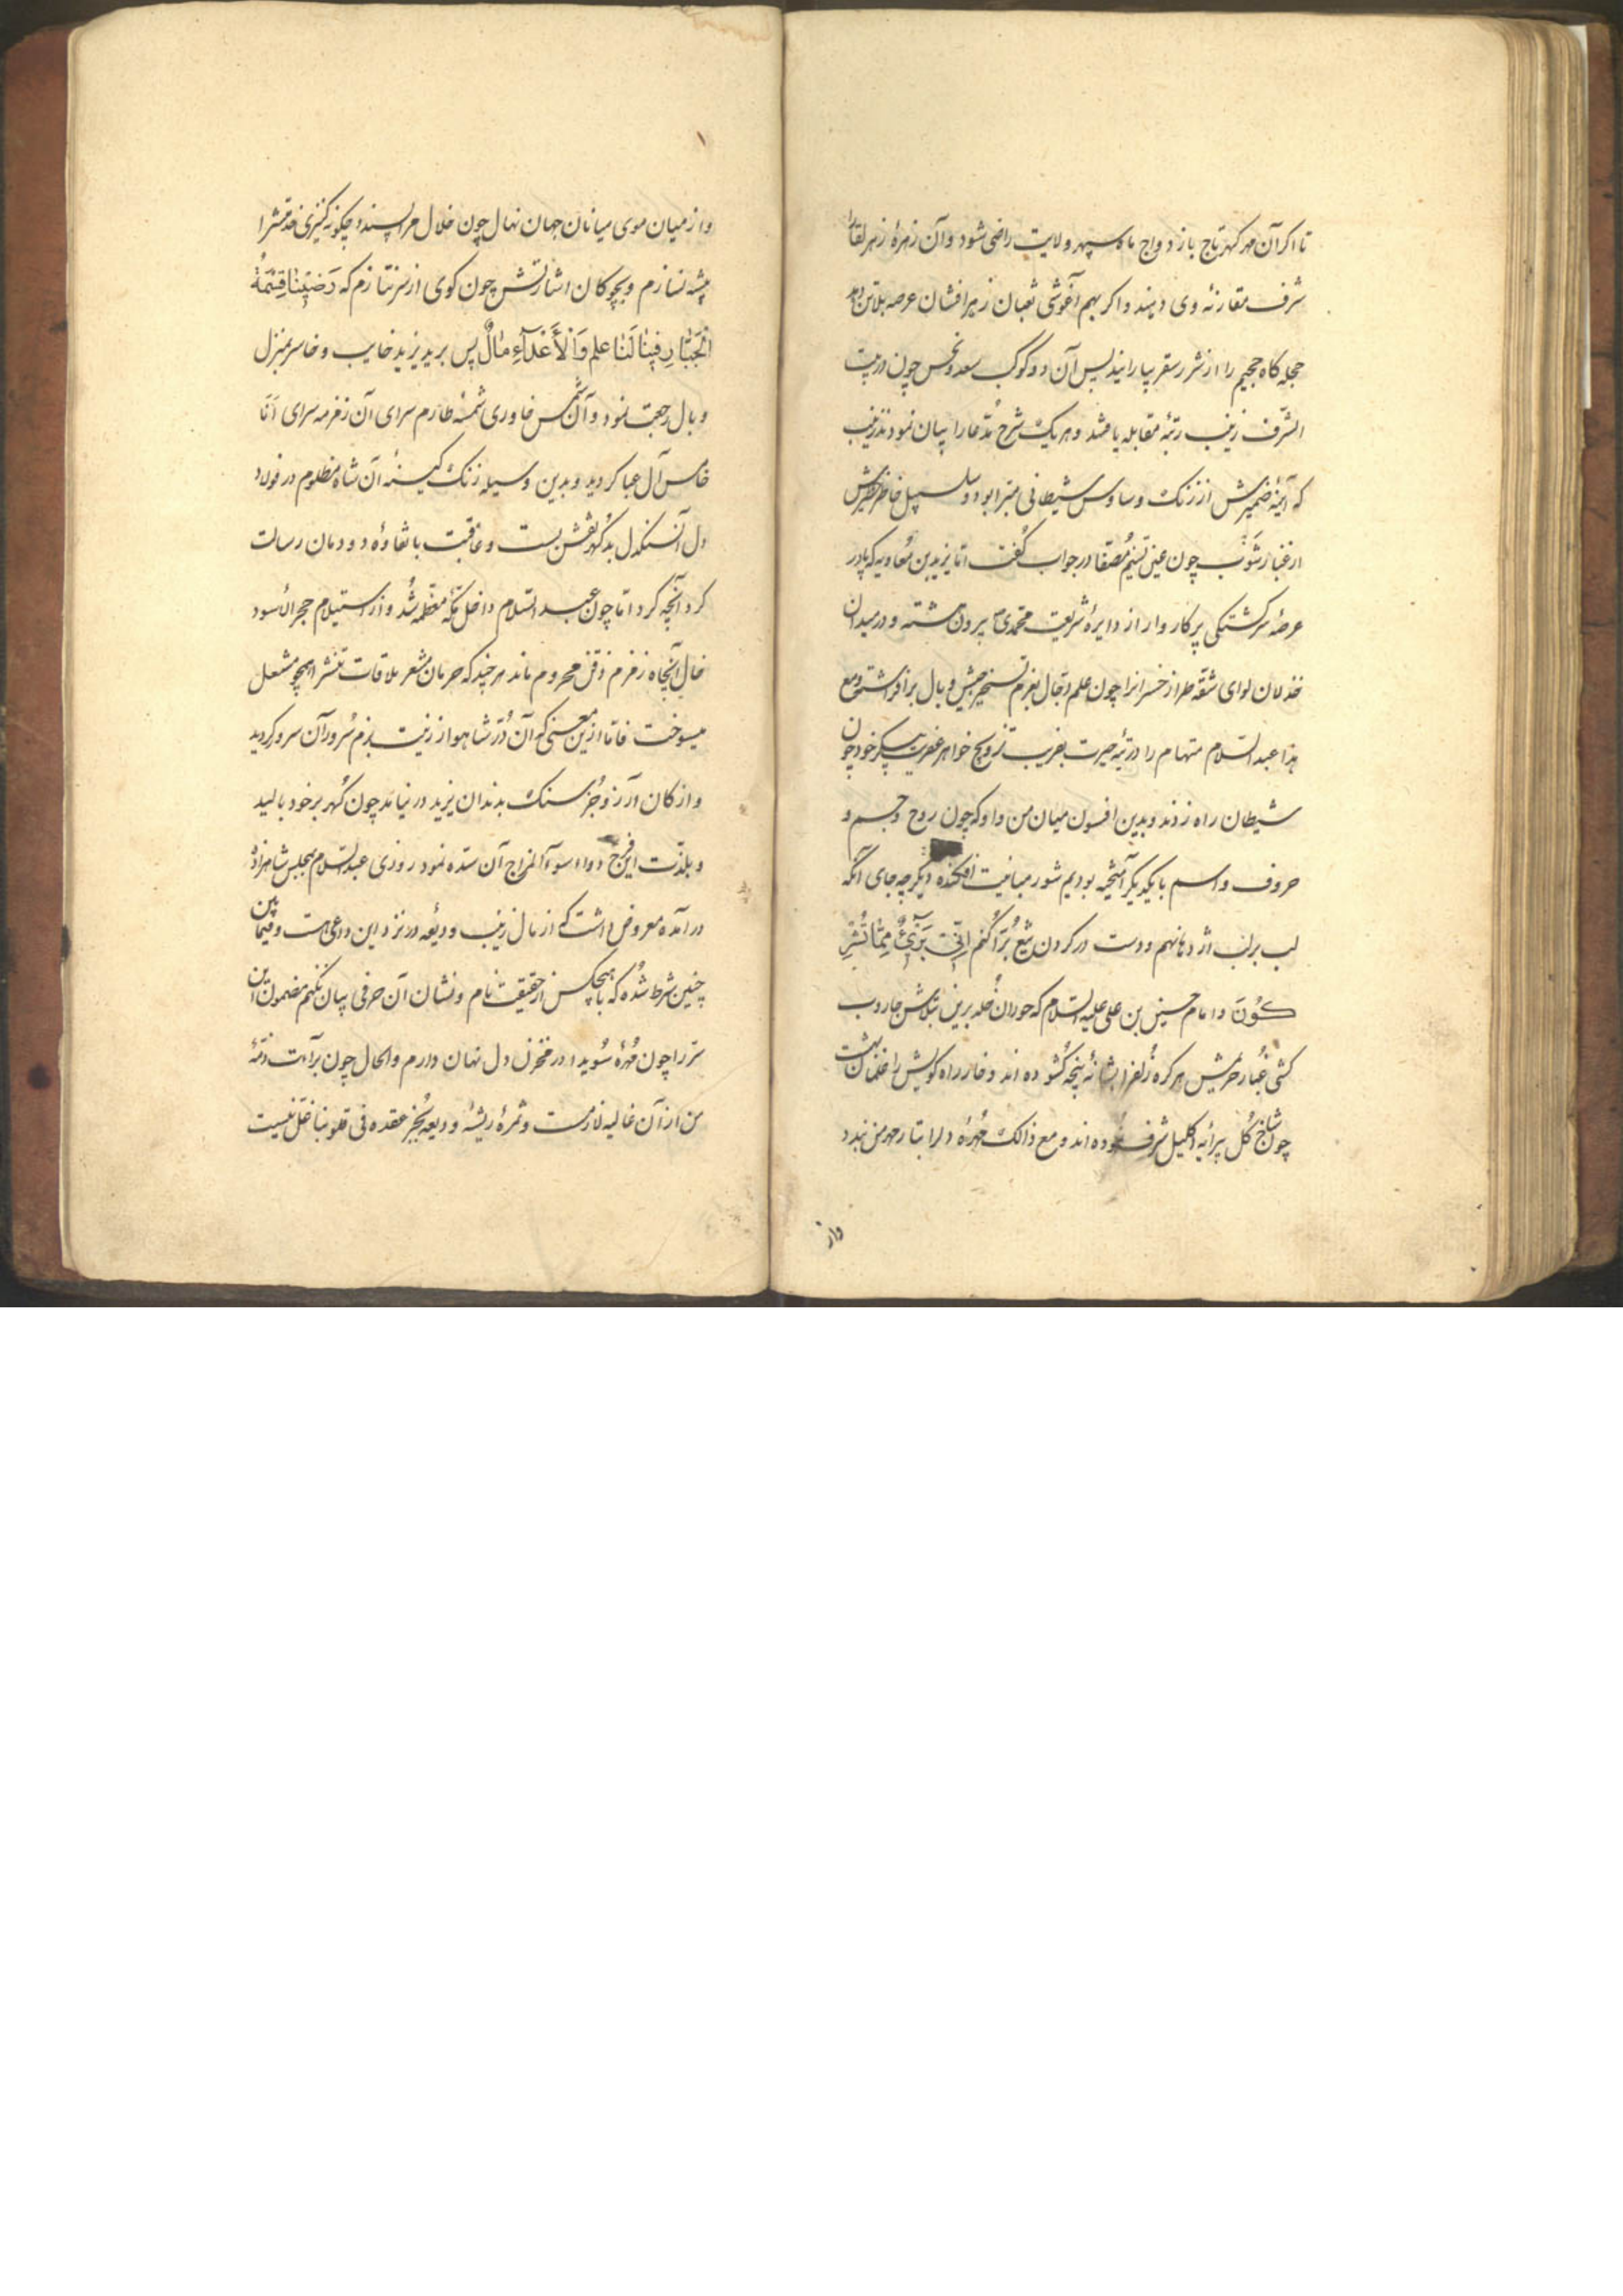 تا اکر آن مهر کهر تاج باز دواج ماه سپهر ولایت راضی شود وآن زهرهٔ زهر لقا را
شرف مقارنهٔ وی دهند واکر بهم آغوشی ثعبان زهر افشان عرصه بلاتن دهد
حجله کاه جحیم را از شرر سقر بیارایند پس آن دو کوکب سعد ونحس چون در بیت
الشرف زینب رتبهٔ مقابله یافتند وهر یک شرح مدعا را بیان نمودند زینب
که آینهٔ ضمیرش از زنک وساوس شیطانی مبرا بود وسلسبیل خاطر
از غبار شوب چون عین تسنیم مصفا در جواب کفت اما یزید بن معاویه که پا در
عرصهٔ سرکشتکی پرکار وار از دایرهٔ شریعت محمدی بیرون هشته و در میدان
خذلان لوای شقه طراز خسرانرا چون علم دجال بعزم تسخیر جیش وبال برافراشته ومع
هذا عبد السلام متهام را در تیه حیرت بفریب تزویج خواهر عفریت پیکر خود چون
شیطان راه زدند وبدین افسون میان من واو که چون روح وجسم و
حروف واسم با یکدیکر آمیخته بودیم شور مباینت افکنده دیکر چه جای آنکه
لب بر لب اژدها نهم ودست در کردن کنم انی بریٔ مما تشر
کون واما حسین بن علی علیه السلام که حوران خلد برین بتلاش جاروب
کشی غبار حریمش هر کره زلفرا بشانهٔ پنجه کشوده اند وخار راه کویش را غلمان بهشت
چون شاخ کل پیرایه اکلیل شرف نموده اند ومع ذالک مهرهٔ دلرا بتار مهر من بندد
واز
واز میان موی میانان جهان نهال چون خلال مرا پسندد چکونه کنیزی خدمتشرا
پیشه نسازم وبچوکان اشارتش چون کوی از سر نتازم که رضینا قسمة
الجبار فینا لنا علم وللأعداء مال پس برید یزید خایب وخاسر بمنزل
وبال رجعت نمود وآن شمس خاوری شمسهٔ طارم سرای آن زمزمه سرای انا
خامس آل عبا کردید وبدین وسیله زنک کینهٔ آن شاه مظلوم در فولاد
دل آن سنکدل بد کهر نقش بست وعاقبت با نقاوهٔ دودمان رسالت
کرد آنچه کرد اما چون عبد السلام داخل مکه معظمه شد واز استیلام حجر الأسود
خال آنچاه زمزم ذقن محروم ماند هر چند که حرمان مشعر ملاقات تنشرا همچو مشعل
میسوخت فاما ازین معنی که آن در شاهوار زینت بزم سرور آن سرور کردید
واز کان آرزو جز سنک بدندان یزید در نیامد چون کهر بر خود بالید
وبلذت این فرح دواء سوء المزاج آن سده نمود روزی عبد السلام بمجلس شاهزاده
در آمده معروض داشت که از مال زینب ودیعه در نزد این داعی هست وفیما بین
چنین شرط شده که با هیچکس از حقیقت نام ونشان آن حرفی بیان نکنم مضمون این
سر را چون مهرهٔ سویدا در مخزن دل نهان دارم والحال چون برآءت ذمهٔ
من از آن غالیه لازمست وثمرهٔ ریشهٔ ودیعه بجز عقده فی قلوبنا غل نیست